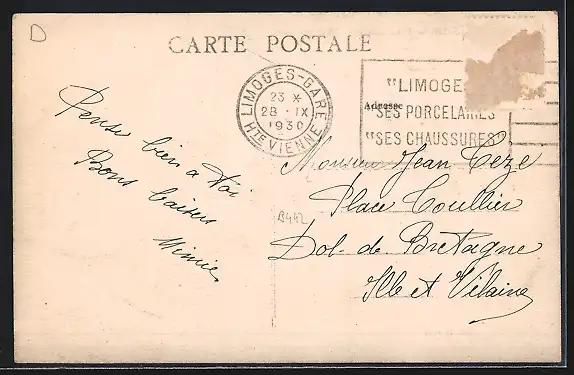 D
CARTE POSTALE
LIMOGES-GARE
23 *
28 · IX
1930
HTE VIENNE
"LIMOGE
Adresse
SES PORCELAINES
"SES CHAUSSURES"
Pense bien a toi
Bons baisers
Mimie
Monsieur Jean Teze
Place Toullier
B442
Dol-de-Bretagne
Ille et Vilaine